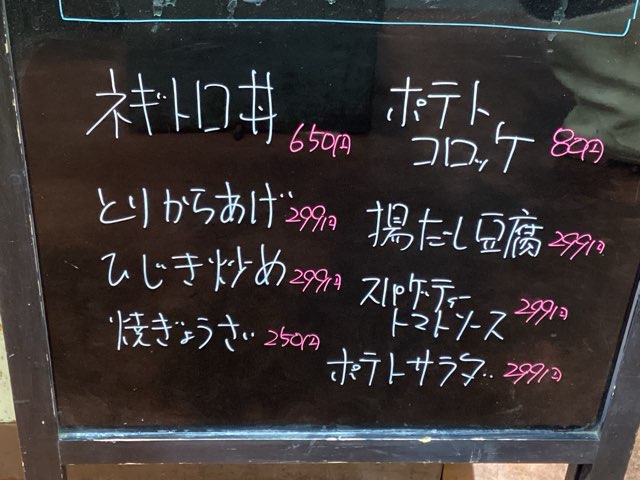 ネギトロ丼 650円
とりからあげ 299円
ひじき炒め 299円
焼ぎょうざ 250円
ポテト
コロッケ 80円
揚だし豆腐 299円
スパゲッティー
トマトソース 299円
ポテトサラダ 299円